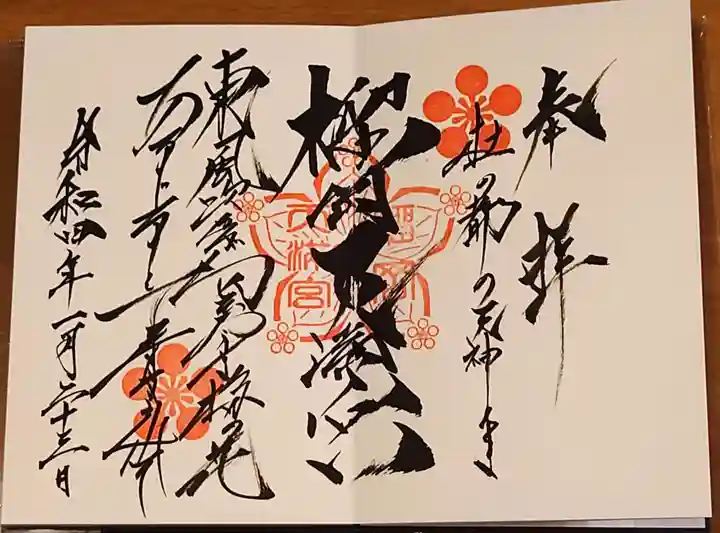 奉拝
杜の都の天神さま
榴岡天満宮
東風吹かば匂ひおこせよ梅の花
あるじなしとて春な忘れそ
令和四年一月二十三日
天満宮